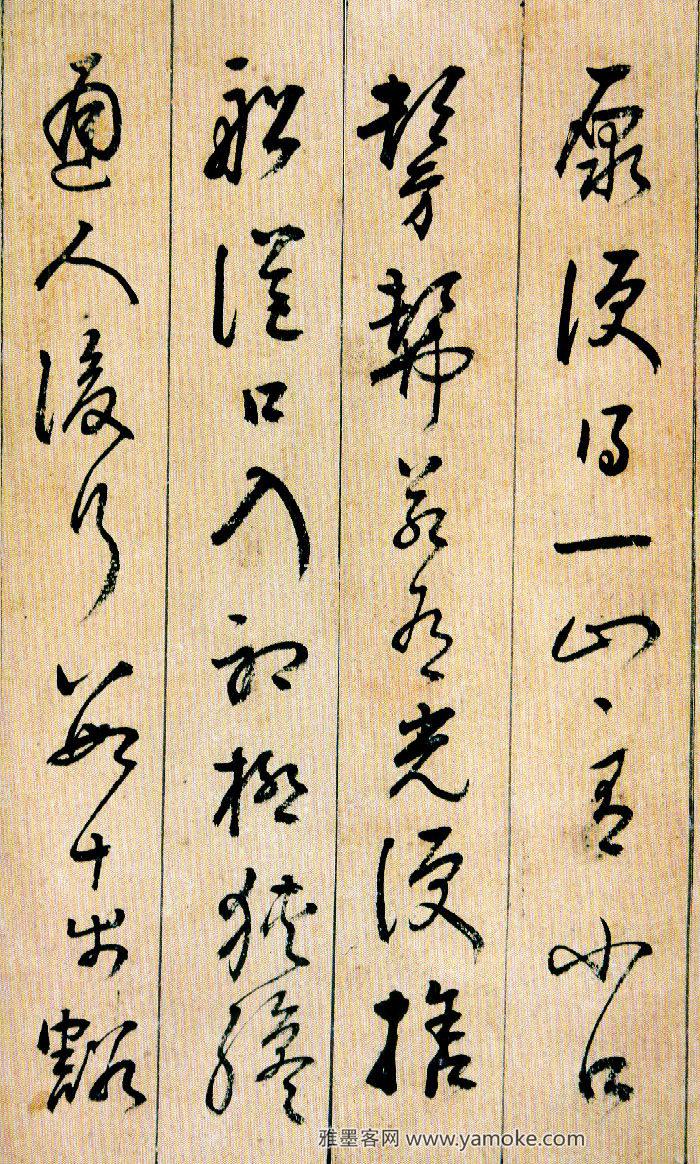 原便得一山〻有小口
髣髴若有光便捨
船從口入初極狹纔
通人復行數十步豁
雅墨客网 www.yamoke.com